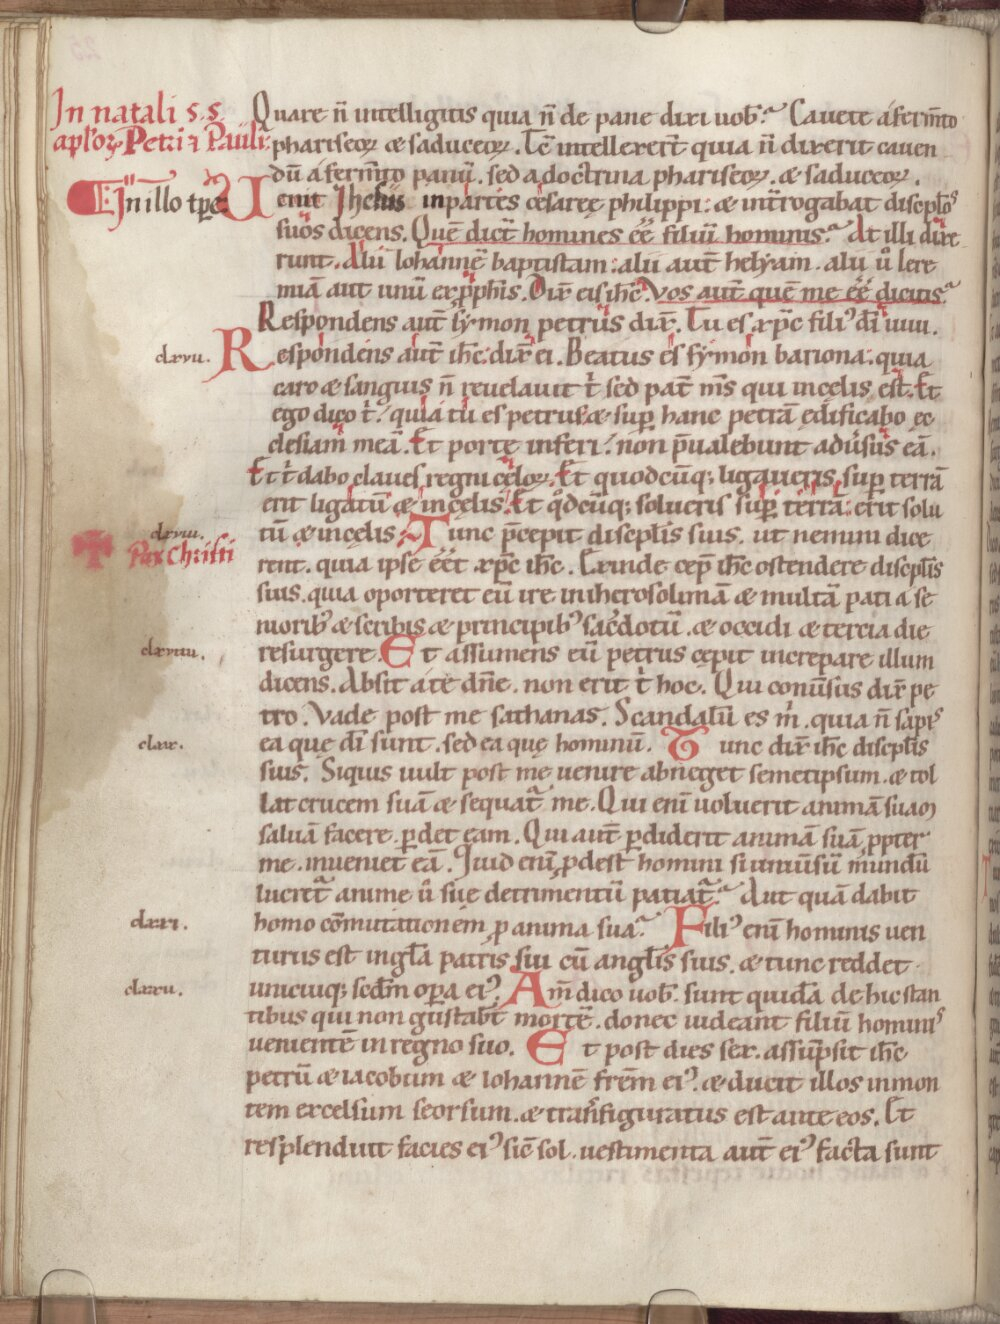 In natali s.s.
aplor̄ Petri ⁊ Pauli:
In illo tp̄r̄e.
Quare n̄ intelligitis quia n̄ de pane dixi uob? Cauete a ferm̄to
phariseoꝝ & saduceoꝝ. Tc̄ intellexer̄t quia n̄ dixerit cauen
dū a ferm̄to panū. sed a doctrina phariseoꝝ. & saduceoꝝ.
Uenit Ihesus in partes cesaree philippi: & int̄rogabat discipl̄os
suos dicens. Quē dict̄ homines ēē filiū hominis? At illi dixe
runt. Alii Iohannē baptistam: alii aut̄ helyam. alii ū Iere
miā aut unū ex pp̄hīs. Dix̄ eis ihc̄. Vos aut̄ quē me ēē dicitis?
Respondens aut̄ symon petrus dix̄. Tu es xp̄c filiꝰ dī uiui.
clxvii. Respondens aut̄ ihc̄. dix̄ ei. Beatus es symon bariona. quia
caro & sanguis n̄ reuelauit t̄ sed pat̄ m̄s qui in celis est. Et
ego dico t̄. quia tu es petrus. & sup̄ hanc petrā edificabo ec
clesiam meā. Et porte inferi. non p̄ualebunt aduersus eā.
Et t̄ dabo claues regni celoꝝ. Et quodcūq; ligaueris sup̄ terrā
erit ligatū & in celis. Et qd̄cūq; solueris sup̄ terrā. erit solu
clxviii. tū & in celis. Tunc p̄cepit discipl̄is suis. ut nemini dice
Pax Christi
rent. quia ipse eēt xp̄c ihc̄. Exinde cep̄ ihc̄ ostendere discipl̄is
suis. quia oporteret eū ire in iherosolimā & multā pati a se
niorib & scribis & principib sac̄dotū. & occidi & tercia die
clxviiii. resurgere. Et assumens eū petrus cepit increpare illum
dicens. Absit a te dn̄e. non erit t̄ hoc. Qui conūsus dix̄ pe
tro. Vade post me sathanas. Scandalū es m̄. quia n̄ sapis
clxx. ea que dī sunt. sed ea que hominū. Tunc dix̄ ihc̄ discipl̄s
suis. Siquis uult post me uenire abneget semetipsum. & tol
lat crucem suā & sequat̄ me. Qui enī uoluerit animā suam
saluā facere. ꝑdet eam. Qui aut̄ ꝑdiderit animā suā ꝓpter
me. inueniet eā. Quid enī ꝓdest homini si uniūsū mundū
lucret̄ anime ū sue detrimentū patiat̄? Aut quā dabit
clxxi. homo cōmutationem ꝓ anima sua? Filiꝰ enī hominis uen
turus est in gl̄a patris sui cū angl̄is suis. & tunc reddet
clxxii. unicuiq; scd̄m opera eiꝰ. Am̄ dico uob. sunt quidā de hic stan
tibus qui non gustab̄t mortē. donec uideant filiū hominis
uenientē in regno suo. Et post dies sex. assūpsit ihc̄
petrū & iacobum & Iohannē frēm eiꝰ. & ducit illos in mon
tem excelsum seorsum. & transfiguratus est ante eos. Et
resplenduit facies eiꝰ sic̄ sol. uestimenta aut̄ eiꝰ facta sunt